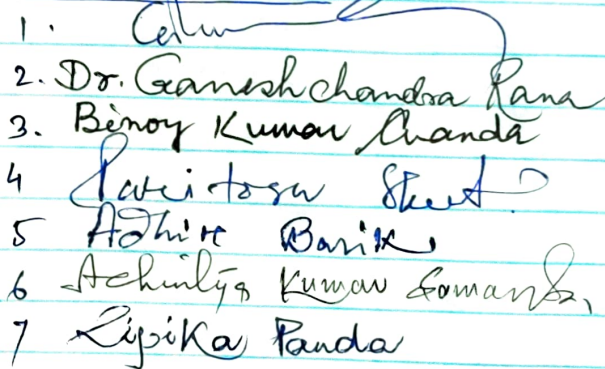 1.
2. Dr. Ganesh chandra Rana
3. Binoy Kumar Chanda
4 Paritosh
5 Adhir Barik
6 Achintya Kumar Samanta,
7 Lipika Panda